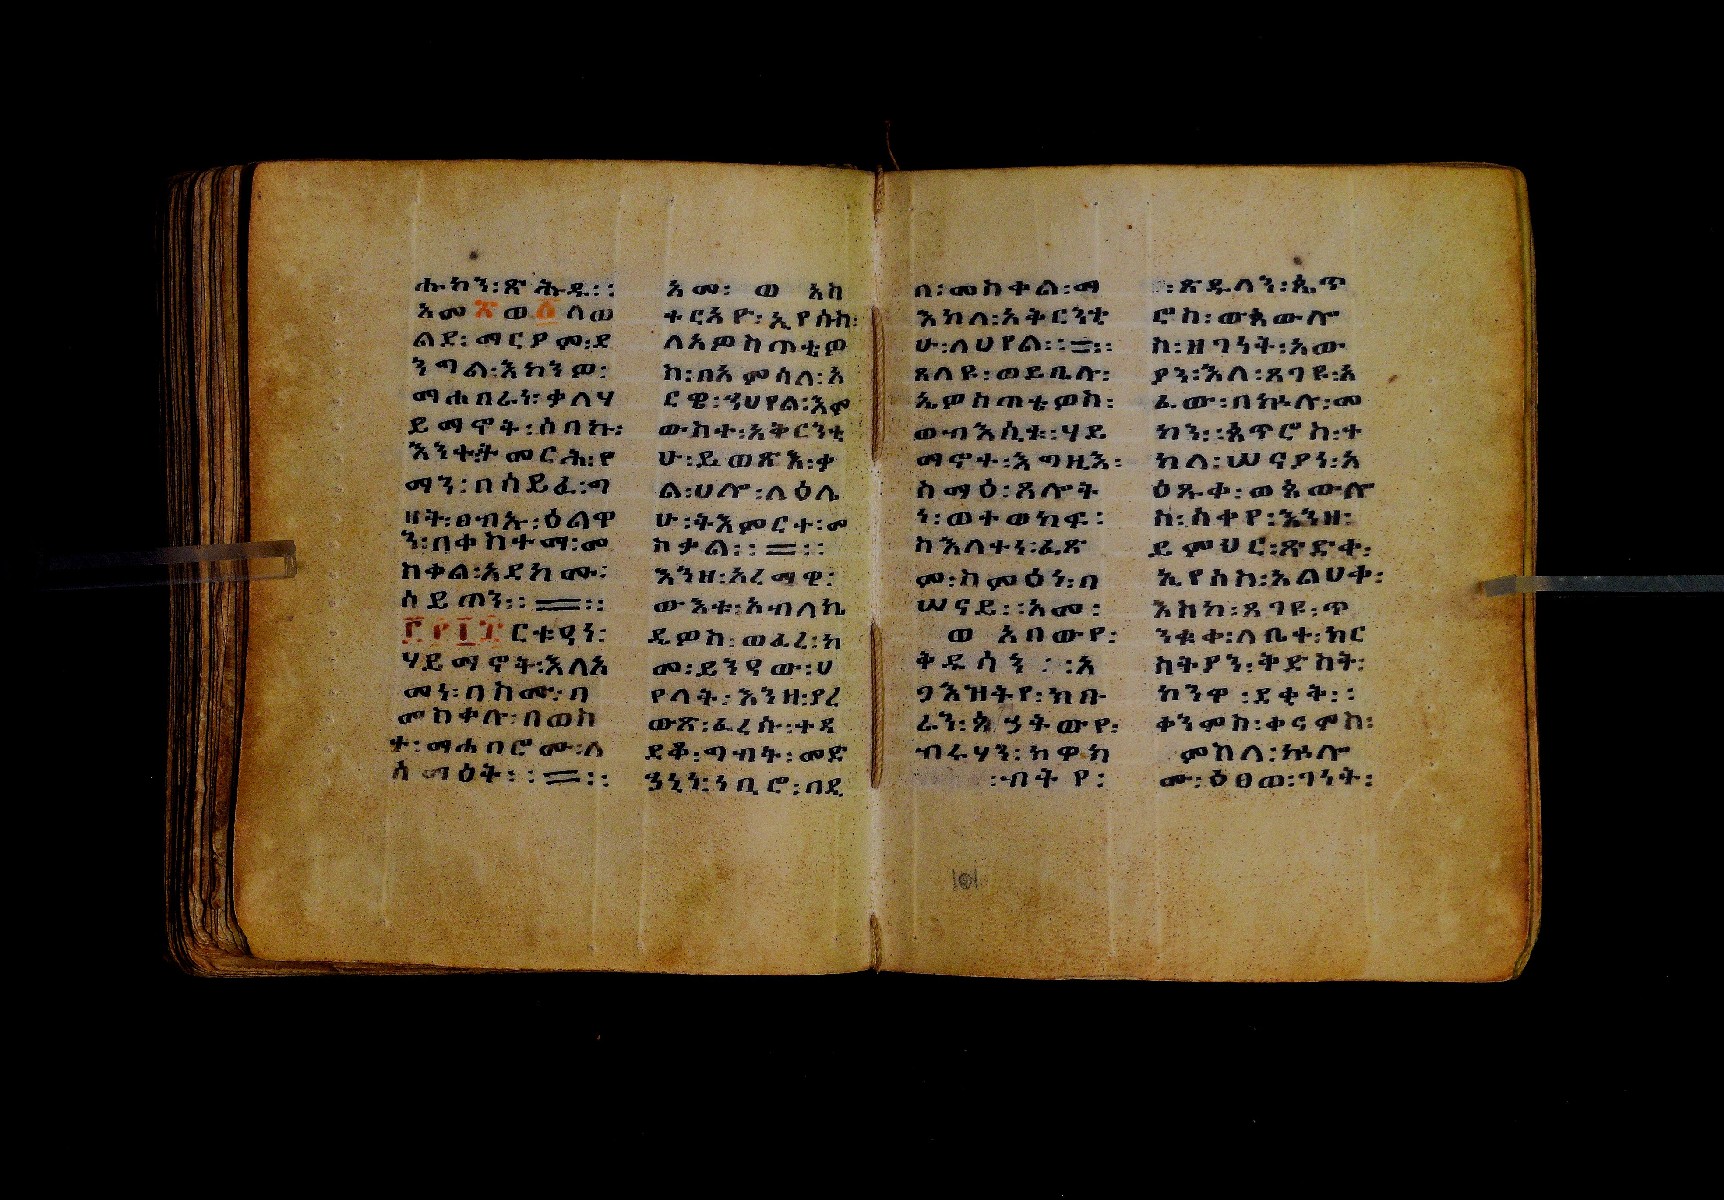 ሑካን፡ጽሕዱ፡፡
አመ ፳ ወ ፩ ለወ
ልደ፡ማርያም፡ድ
ንግል፡እክንዎ፡
ማሐበራነ፡ቃለሃ
ይማኖት፡ሰባኩ፡
እንተ፡ት መርሕ፡የ
ማን፡በሰይፈ፡ግ
ዘት፡ፀብኡ፡ዕልዋ
ን፡በቀስተማ፡መ
ስቀል፡አደክሙ፡
ሰይጠን፡፡ ፡፡
፫፻፲፰ ርቱዓነ፡
ሃይማኖት፡እለአ
መነ፡በከሙ፡በ
መስቀሉ፡በወስ
ተ፡ማሐበሮሙ፡ለ
ሰማዕት፡፡ ፡፡
አመ፡ ወ አክ
ተርአዮ፡ኢየሱስ፡
ለአዎስጣቲዎ
ስ፡በአምሳለ፡አ
ርዌ፡ንህየል፡እም
ውስተ፡አቅርንቲ
ሁ፡ይወጽእ፡ቃ
ል፡ህሎ፡ለዕሌ
ሁ፡ትእምርተ፡መ
ስቃል፡፡ ፡፡
እንዘ፡አረማዊ፡
ውእቱ፡አብላኪ
ዲዎስ፡ወፈረ፡ከ
መ፡ይንዓው፡ሀ
የላት፡እንዘ፡ያረ
ውጽ፡ፈረሱ፡ተዳ
ደቆ፡ግብት፡መድ
ኅኒነ፡ነቢሮ፡በዲ
በ፡መስቀል፡ማ
እከለ፡አቅርንቲ
ሁ፡ለሀየል፡፡ ፡፡
ጸለዩ፡ወይቤሉ፡
ኤዎስጣቴዎስ፡
ወብእሲቱ፡ሃይ
ማኖተ፡እግዚእ፡
ስማዕ፡ጸሎት
ነ፡ወተወክፍ፡
ስእለተነ፡ፈጽ
ም፡ስምዕነ፡በ
ሠናይ፡፡አመ፡
ወ አበውየ፡
ቅዱሳን ፡፡አ
ግእዝትየ፡ክቡ
ራን፡አኃትውየ፡
ብሩሃን፡ከዋክ
፡ብትየ፡
፡ጽዱላን፡ጴጥ
ሮስ፡ውጳውሎ
ስ፡ዘገነት፡አው
ያን፡እለ፡ጸገዩ፡አ
ፈው፡በኵሉ፡መ
ክን፡፡ጴጥሮስ፡ተ
ከለ፡ሠናያነ፡አ
ዕጹቀ፡ወጳውሎ
ስ፡ስቀየ፡እንዘ፡
ይምህሮ፡ጽድቀ፡
ኢየሱስ፡አልህቀ፡
እስከ፡ጸገዩ፡ጥ
ንቁቀ፡ለቤተ፡ክር
ስትያን፡ትድስት፡
ከንዋ፡ደቂት፡፡
ቀንምስ፡ቀናምስ፡
ምስለ፡ኵሎ
ሙ፡ዕፀወ፡ገነት፡